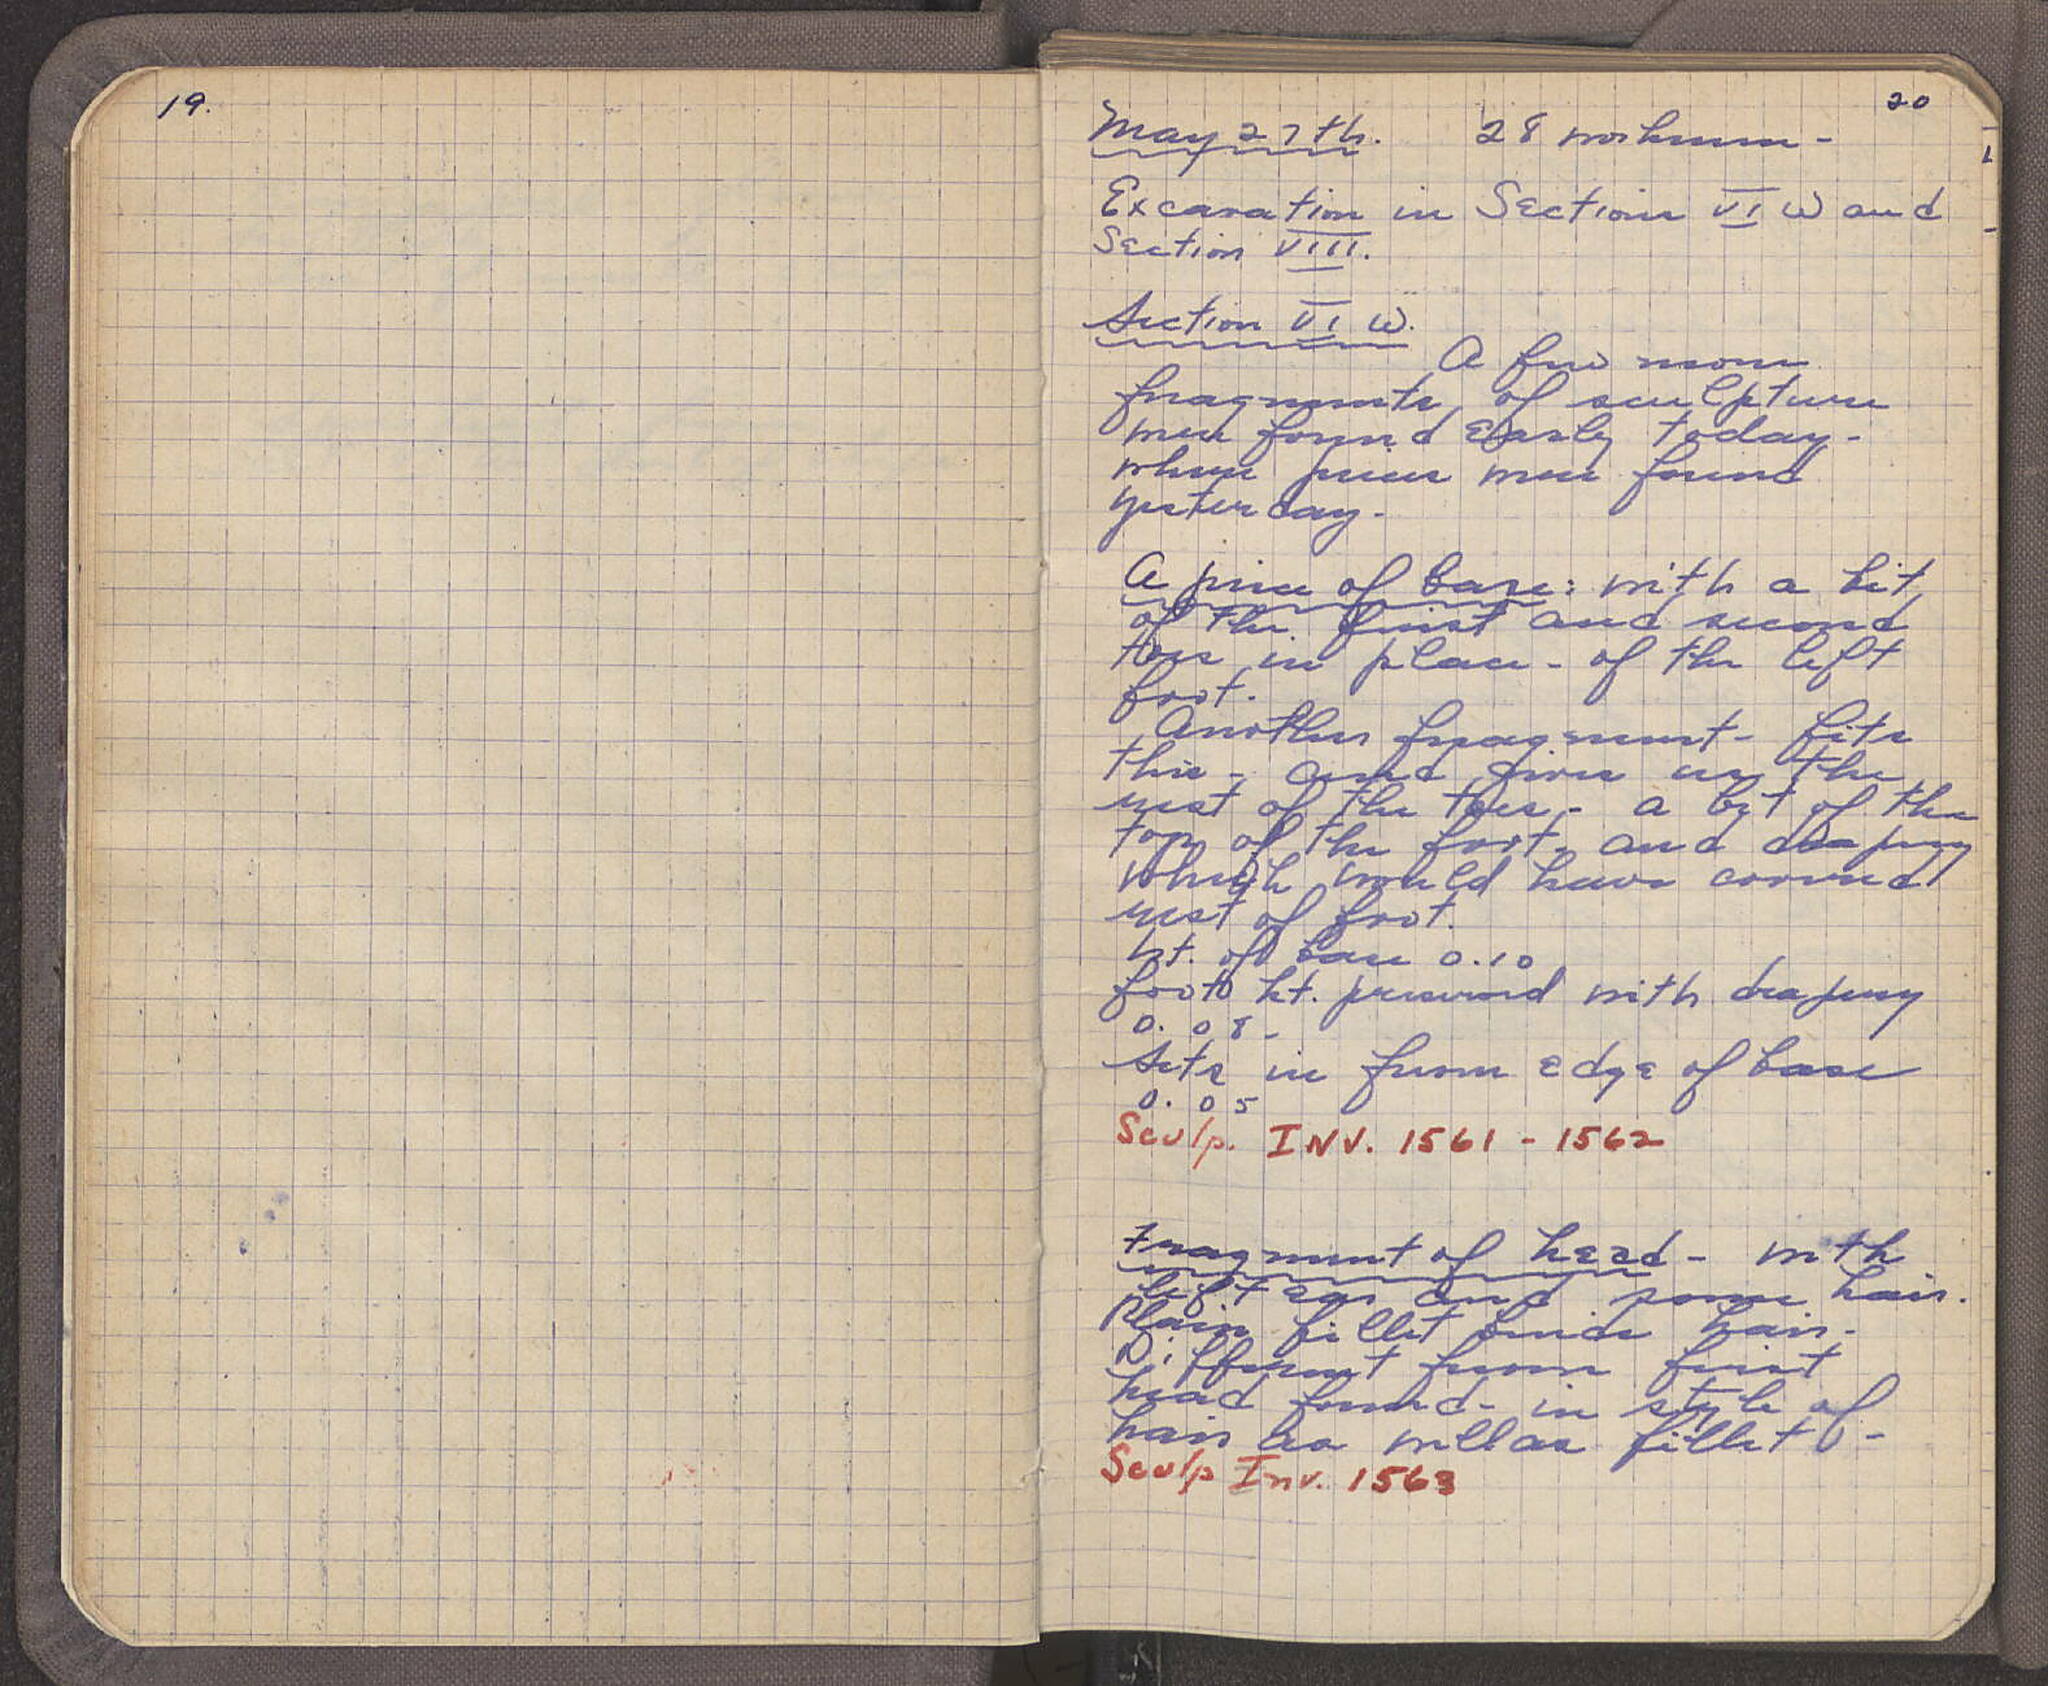 19.
20
May 27th. 28 workmen -
Excavation in Sections VI W and
Section VIII.
Section VI W.
A few more
fragments of sculpture
were found early today -
where pieces were found
yesterday -
A piece of base: with a bit
of the first and second
toes in place - of the left
foot.
Another fragment - fits
this - and gives us the
rest of the toes - a bit of the
top of the foot and drapery
which would have covered
rest of foot.
ht. of base 0.10
foot ht. preserved with drapery
0.08 -
Sets in from edge of base
0.05
Sculp. INV. 1561 - 1562
Fragment of head - with
left ear and some hair.
Plain fillet binds hair -
Different from first
head found - in style of
hair as well as fillet -
Sculp Inv. 1563